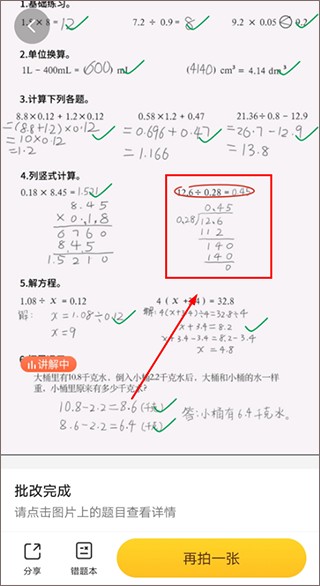 1.基础练习。
1.5×8=12 7.2÷0.9=8 9.2×0.05 < 9.2
2.单位换算。
1L-400mL=(600)mL (4140)cm³=4.14dm³
3.计算下列各题。
8.8×0.12+1.2×0.12 0.58×1.2+0.47 21.36÷0.8-12.9
=(8.8+1.2)×0.12 =0.696+0.47 =26.7-12.9
=10×0.12 =1.166 =13.8
=1.2
4.列竖式计算。
0.18×8.45=1.521 12.6÷0.28=0.45
8.45
×0.18
6760
845
1.5210
0.45
0.28 12.6
112
140
140
0
5.解方程。
1.08÷x=0.12 4(x+3.4)=32.8
解: x=1.08÷0.12 解:4(x+3.4)÷4=32.8÷4
x=9 x+3.4=8.2
x+3.4-3.4=8.2-3.4
x=4.8
讲解中
大桶里有10.8千克水,倒入小桶2.2千克水后,大桶和小桶的水一样
重,小桶里原来有多少千克水?
10.8-2.2=8.6(千克)
8.6-2.2=6.4(千克) 答:小桶有6.4千克水。
批改完成
请点击图片上的题目查看详情
分享 错题本 再拍一张